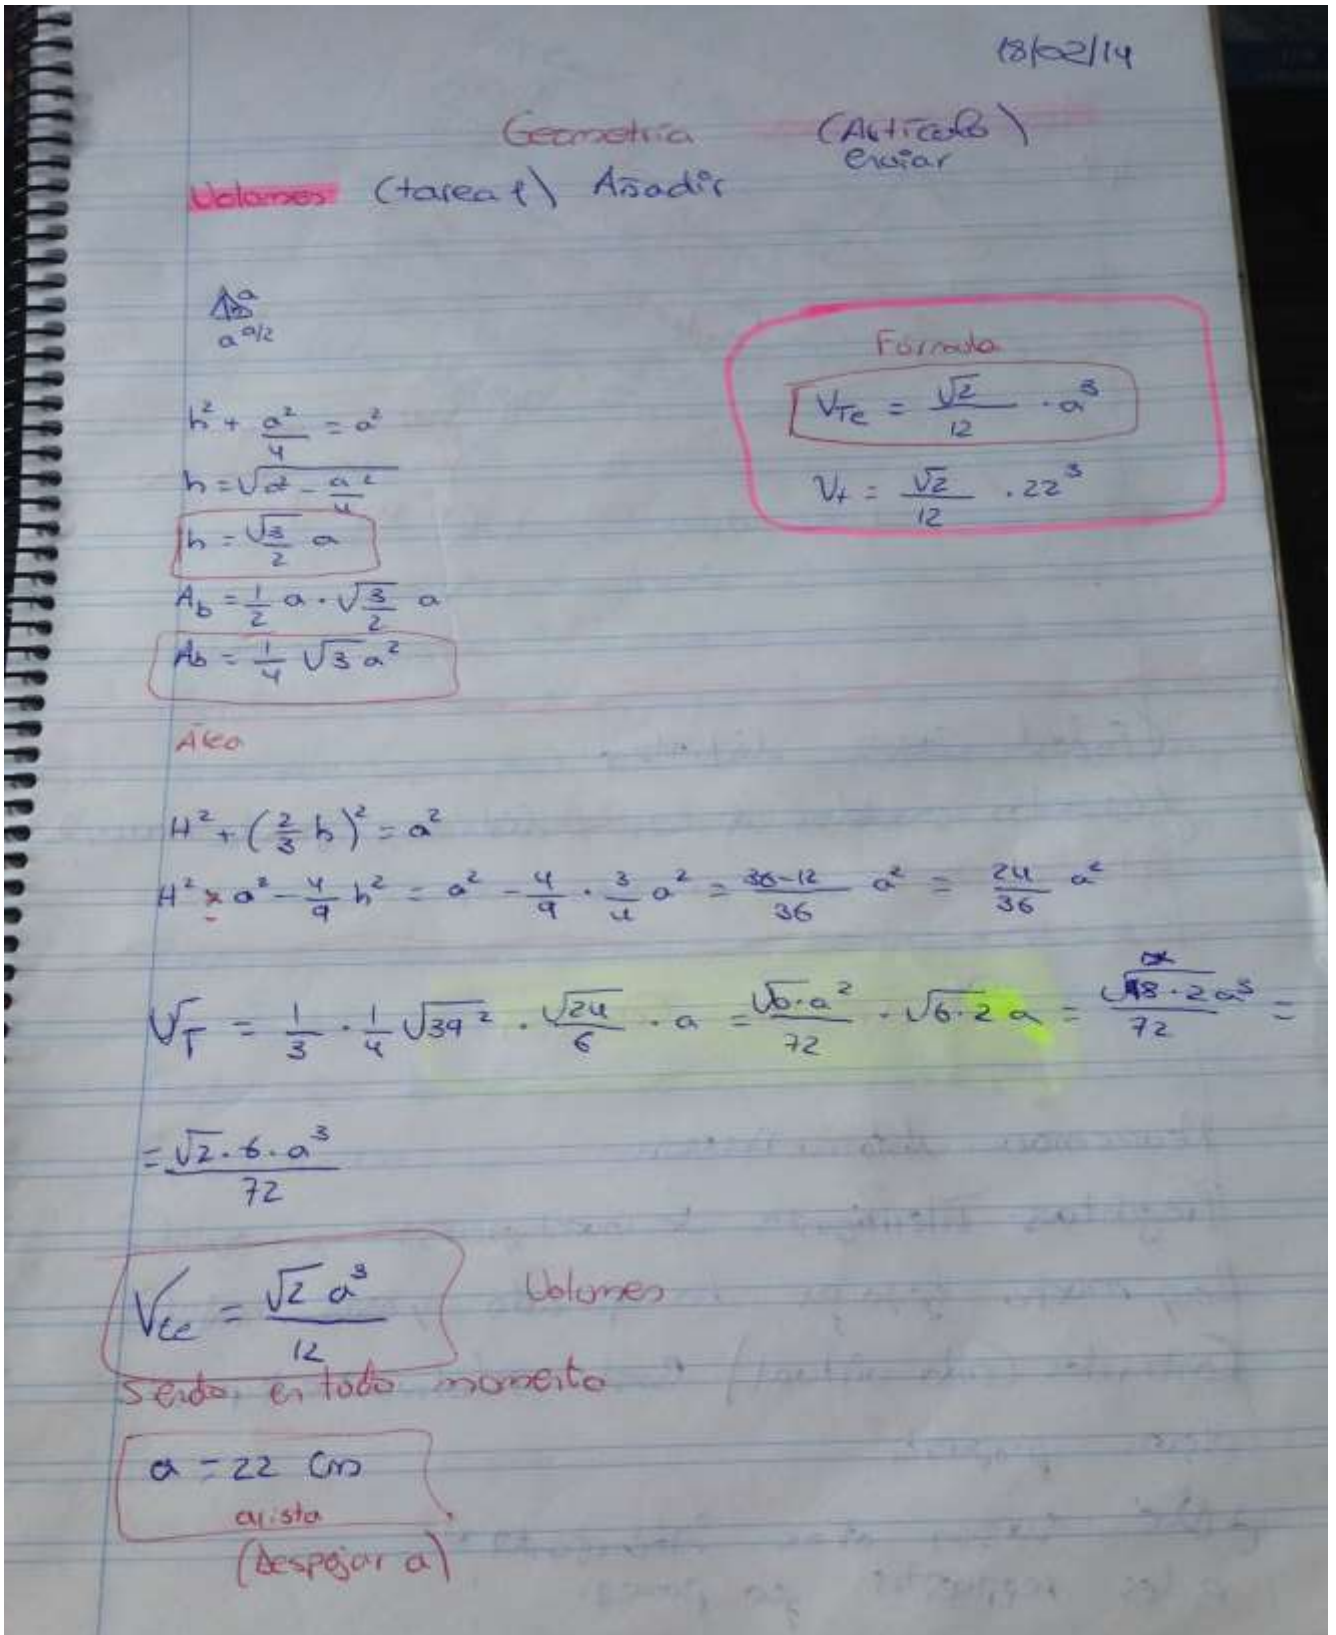 18/02/14
Geometría (Artículo)
enviar
Volumes (tarea 1) Añadir
a
h
a a/2
h² + a²/4 = a²
h = √a² - a²/4
h = √3/2 a
A_b = 1/2 a · √3/2 a
A_b = 1/4 √3 a²
Área
Fórmula
V_Te = √2/12 · a³
V_t = √2/12 · 22³
H² + (2/3 h)² = a²
H² = a² - 4/9 h² = a² - 4/9 · 3/4 a² = 36-12/36 a² = 24/36 a²
V_T = 1/3 · 1/4 √3a² · √24/6 · a = √6·a²/72 · √6·2 a = √18·2 a³/72 =
= √2 · 6 · a³/72
V_te = √2 a³/12 Volumes
Sendo, en todo momento
a = 22 cm
arista
(Despejar a)